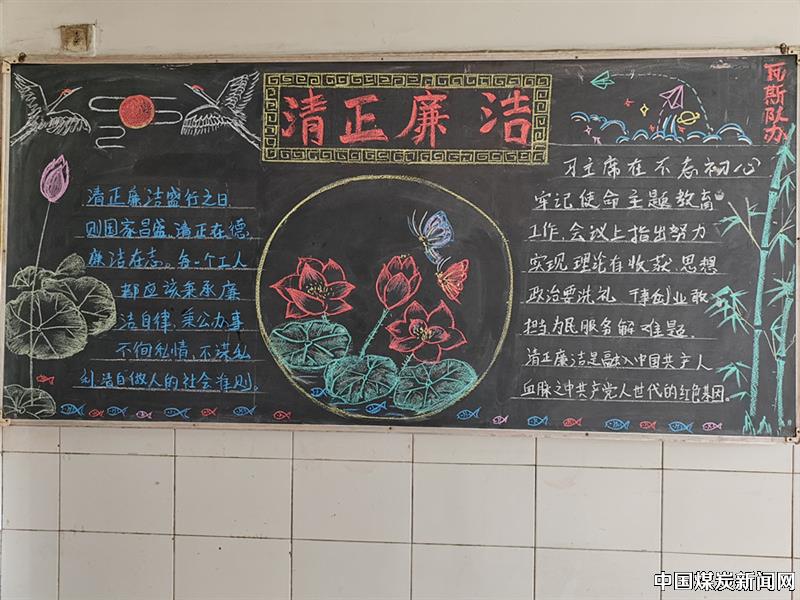 清正廉洁
瓦斯队办
清正廉洁盛行之日
则国家昌盛，清正在德
廉洁在志。每一个工人
都应该秉承廉
洁自律，秉公办事
不徇私情，不谋私
利洁自做人的社会准则。
习主席在不忘初心
牢记使命主题教育
工作会议上指出努力
实现理论有收获思想
政治要洗礼 干事创业敢
担当为民服务解难题。
清正廉洁是融入中国共产人
血脉之中共产党人世代的红色基因
中国煤炭新闻网